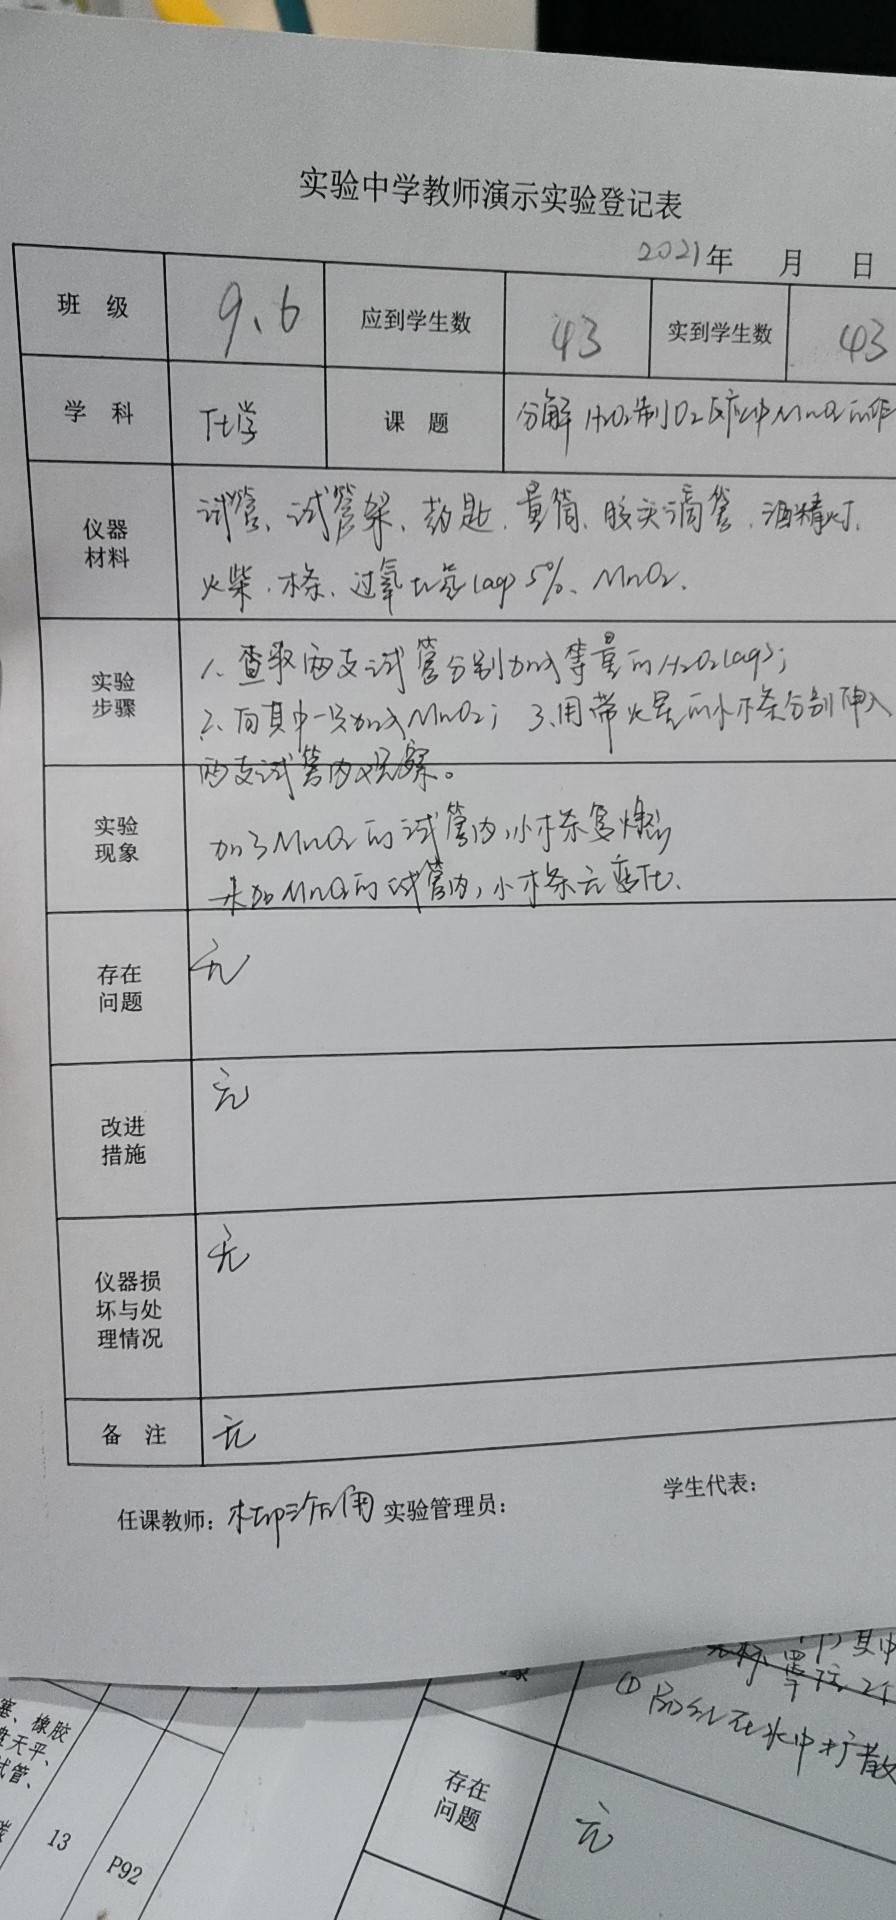 实验中学教师演示实验登记表
2021年 月 日
班 级 9、6 应到学生数 43 实到学生数 43
学 科 化学 课 题 分解H₂O₂制O₂反应中MnO₂的作
仪器
材料
试管、试管架、药匙、量筒、胶头滴管、酒精灯、
火柴、木条、过氧化氢(aq)5%、MnO₂.
实验
步骤
1、取两支试管分别加入等量的H₂O₂(aq);
2、向其中一只加入MnO₂; 3、用带火星的小木条分别伸入
两支试管内观察。
实验
现象
加了MnO₂的试管内,小木条复燃;
未加MnO₂的试管内,小木条无变化.
存在
问题
无
改进
措施
无
仪器损
坏与处
理情况
无
备 注 无
任课教师: 实验管理员: 学生代表:
其中
①
在水中扩散
存在
问题
无
塞、橡胶
天平、
试管、
13
P92